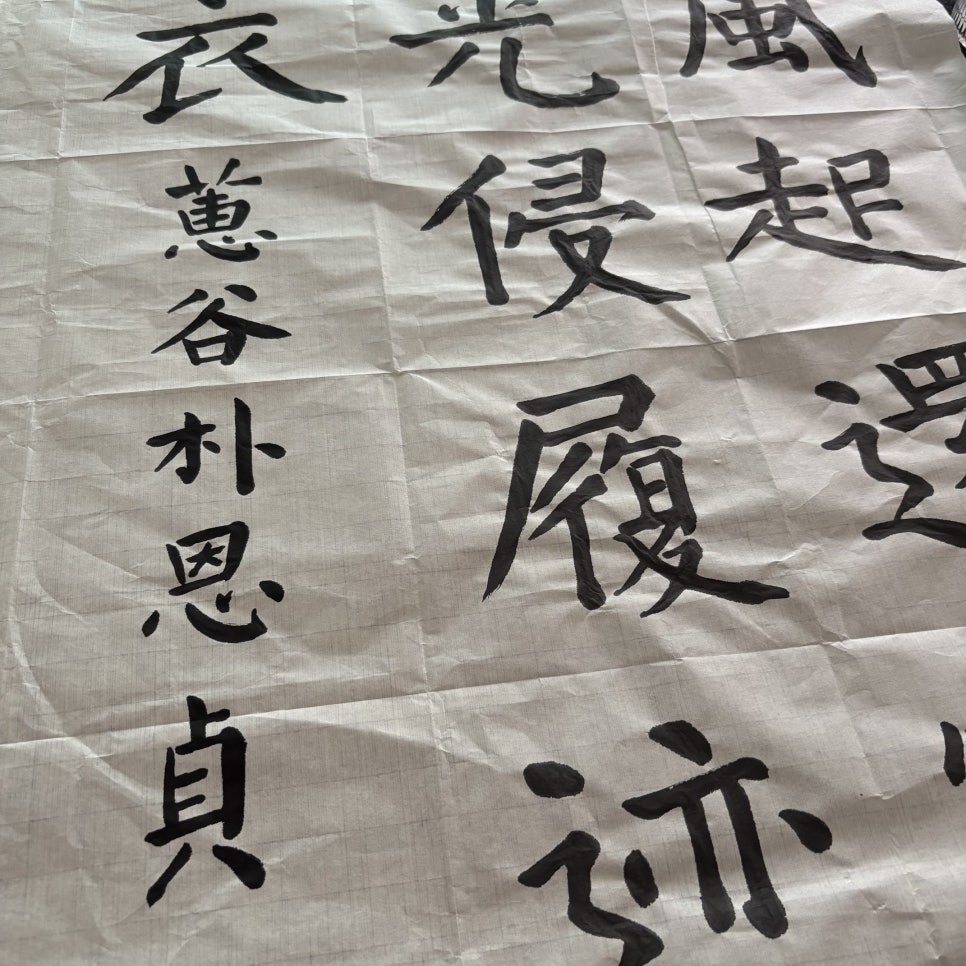 風起還
光侵履迹
衣
蕙谷朴恩貞